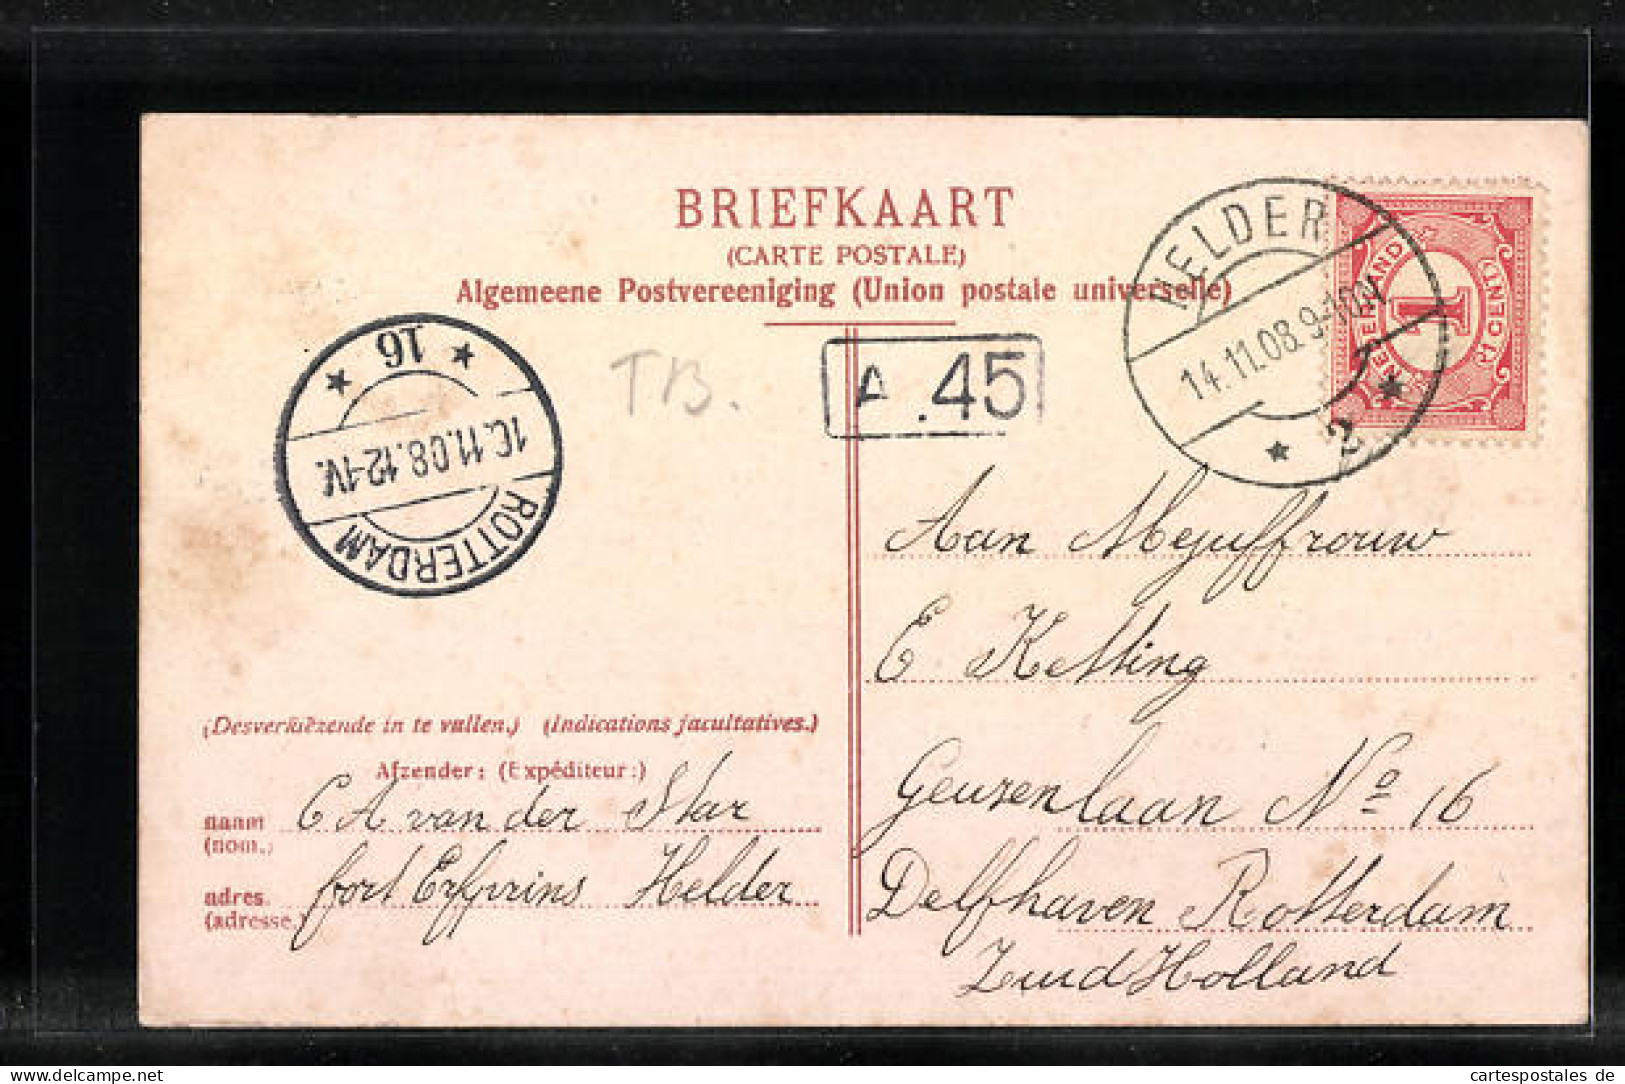 BRIEFKAART
(CARTE POSTALE)
Algemeene Postvereeniging (Union postale universelle)
HELDER
14.11.08.9-10N
2
NEDERLAND
1
1 CENT
16
1C.11.08.12-1V.
ROTTERDAM
TB.
A .45
Aan Mejuffrouw
E Ketting
Geuzenlaan No 16
Delfhaven Rotterdam
Zuid Holland
(Desverkiezende in te vullen.) (Indications facultatives.)
Afzender: (Expéditeur:)
naam C A van der Star
(nom.)
adres. fort Erfprins Helder
(adresse.)
cartespostales de